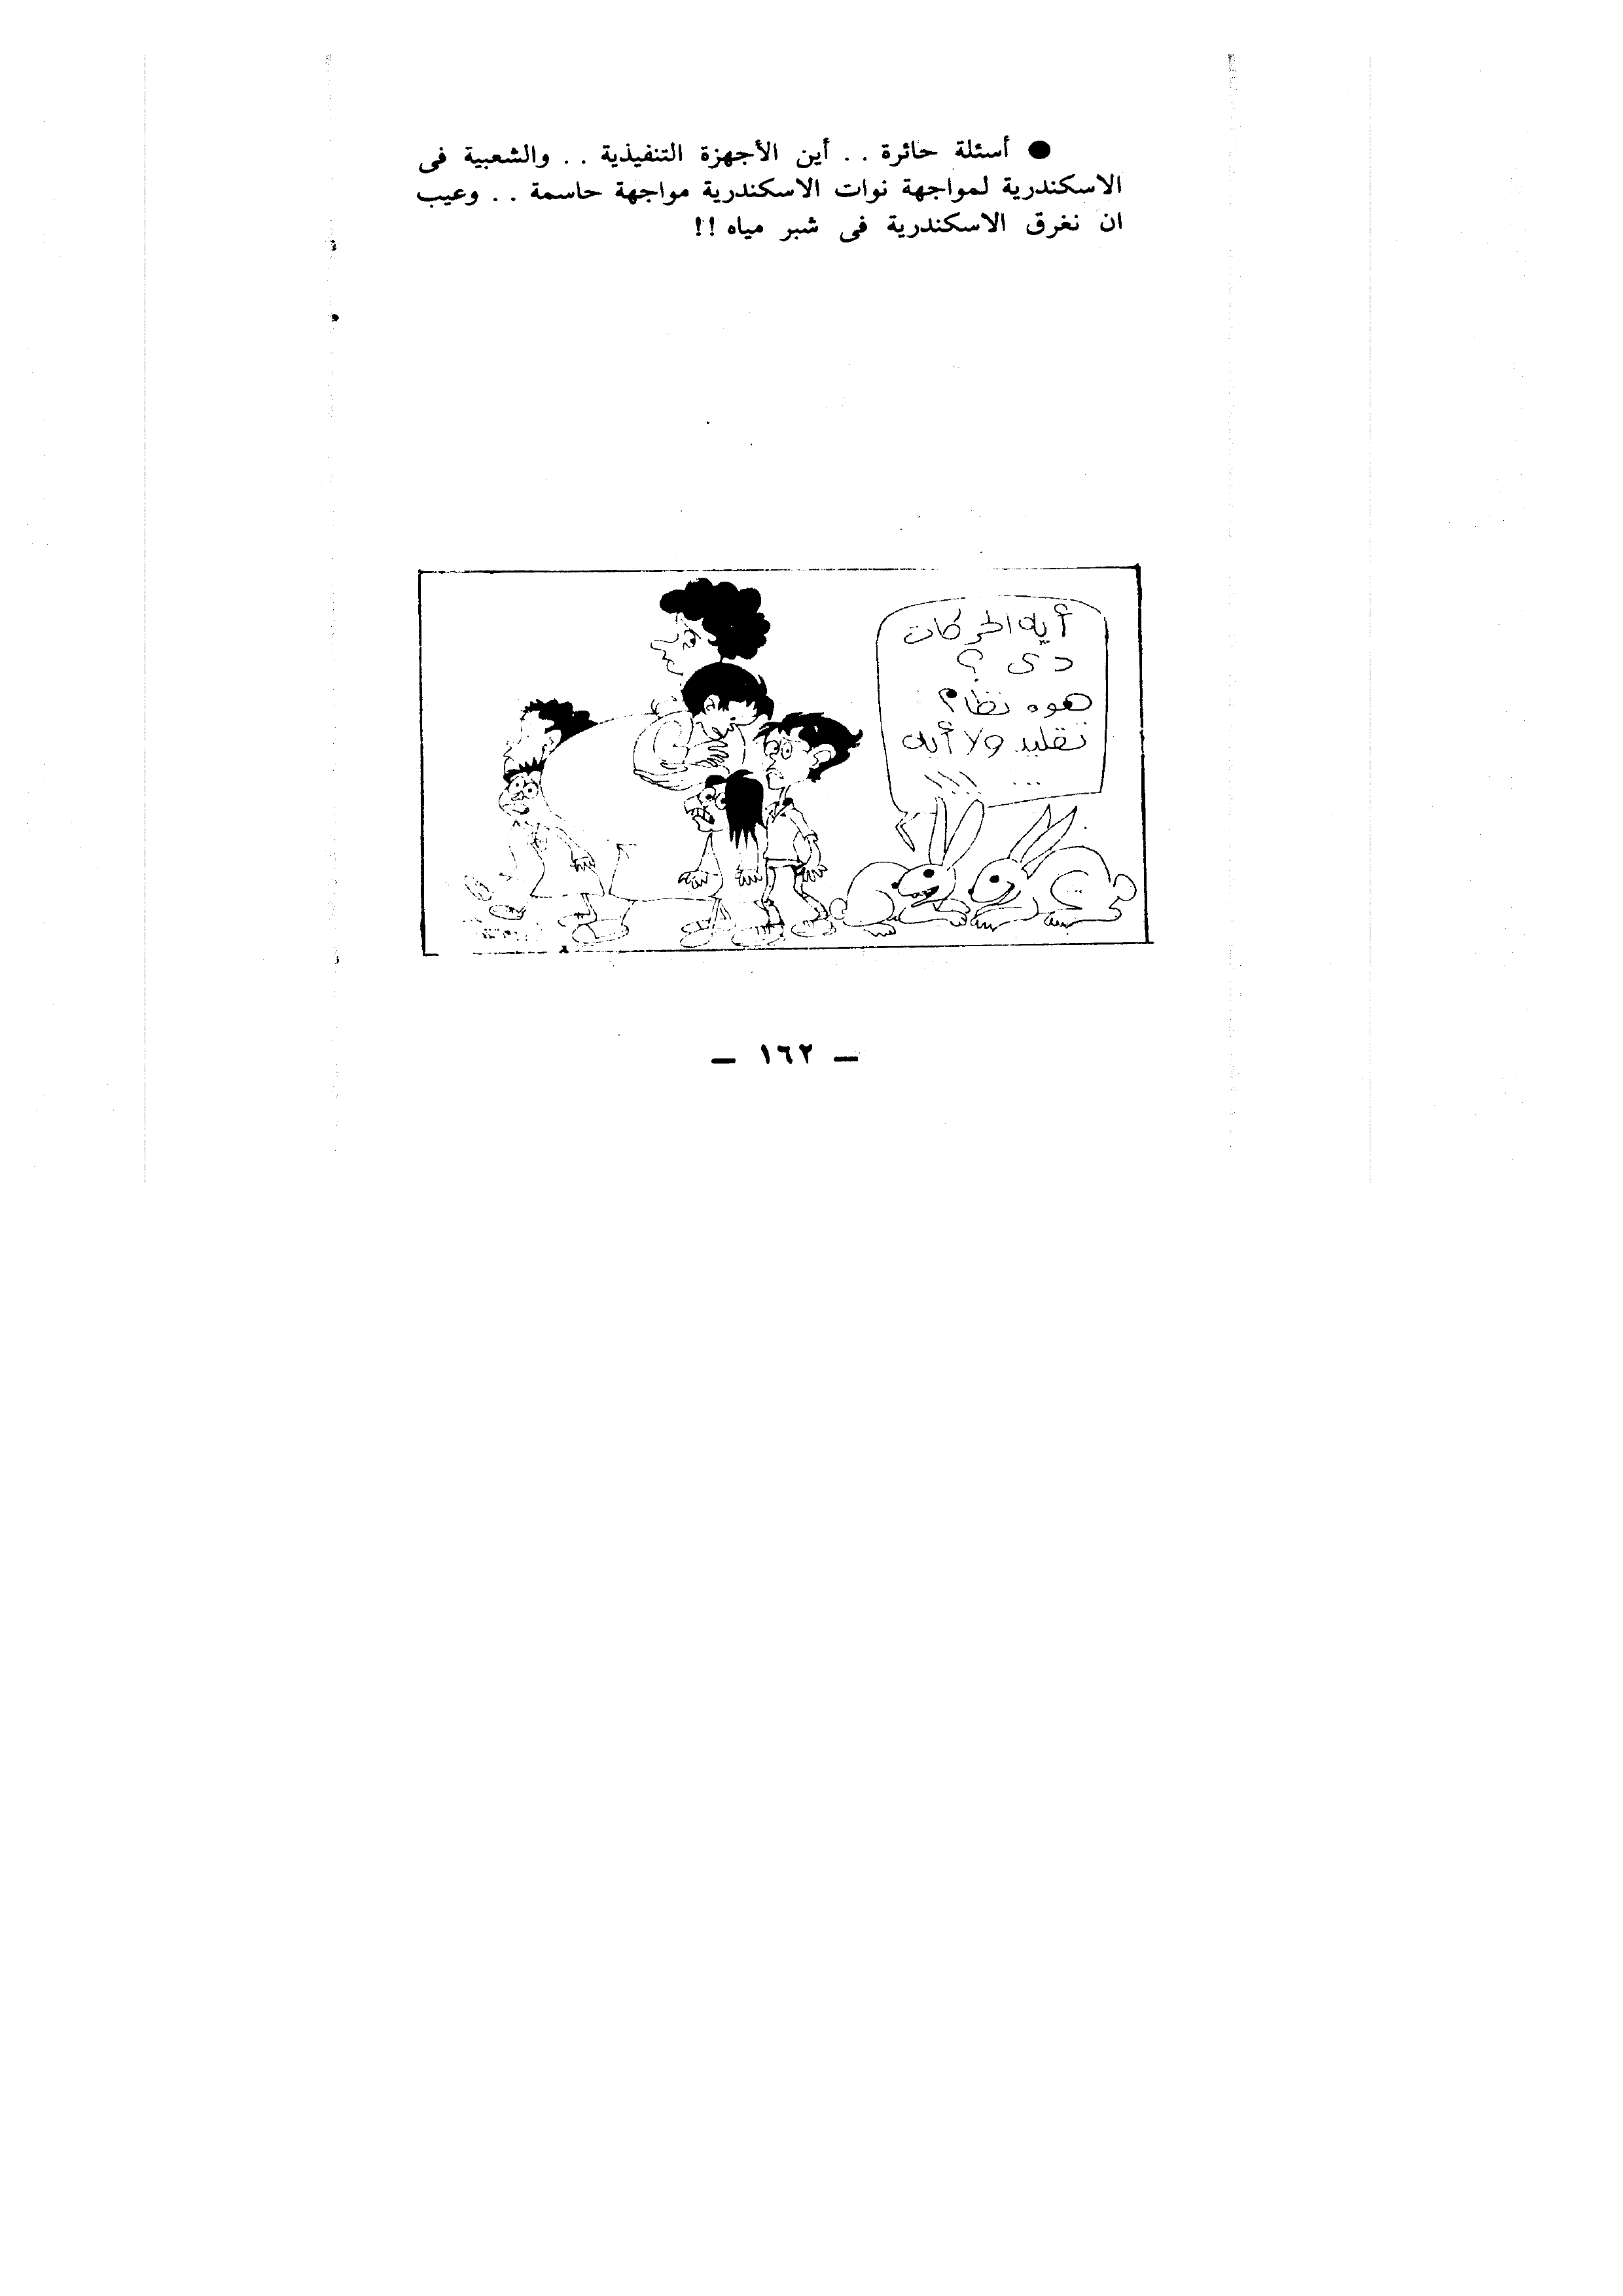 ● أسئلة حائرة . . أين الأجهزة التنفيذية . . والشعبية فى
الاسكندرية لمواجهة نوات الاسكندرية مواجهة حاسمة . . وعيب
ان نغرق الاسكندرية فى شبر مياه !!
أيه الحركات
دى ؟
هوه نظام
تقليد ولا أيه
... !!!
— ١٦٢ —